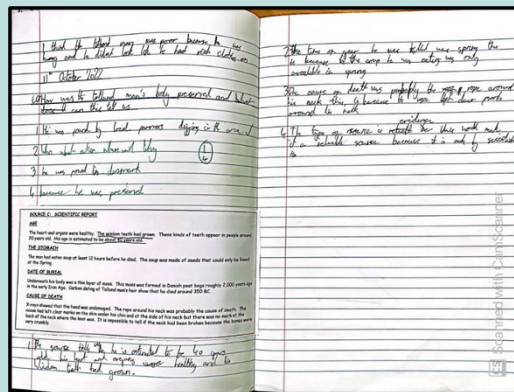 I think the tolland man was poor because he was
hung and he didnt look like he had rich clothes on
11th October 2022
How was the tolland man's body preserved and what
does it can this tell us
1 He was found by local farmers digging in the area
2 Who what when where and why
3 he was proud to
4 because he was preserved
SOURCE C: SCIENTIFIC REPORT
AGE
The heart and organs were healthy. The wisdom teeth had grown. These kinds of teeth appear in people around
20 years old. His age is estimated to be about 40 years old.
THE STOMACH
The man had eaten soup at least 12 hours before he died. The soup was made of seeds that could only be found
at the Spring.
DATE OF BURIAL
Underneath his body was a thin layer of moss. This moss was formed in Danish peat bogs roughly 2,000 years ago
in the early Iron Age. Carbon dating of Tolland man's hair show that he died around 350 BC.
CAUSE OF DEATH
X-rays showed that the head was undamaged. The rope around his neck was probably the cause of death. The
noose had left clear marks on the skin under his chin and at the side of his neck but there was no mark at the
back of the neck where the knot was. It is impossible to tell if the neck had been broken because the bones were
very crumbly.
1 The source tells us he is estimated to be 40 years
old, his heart and organs were healthy and his
wisdom teeth had grown.
2 The time of year he was killed was spring the
because the soup he was eating was only
available in spring
3 The cause of death was probably the rope around
his neck this is because it was left clear marks
around his neck
evidence
4 The type of source is
if a reliable source because it is made by scientists
Scanned with CamScanner